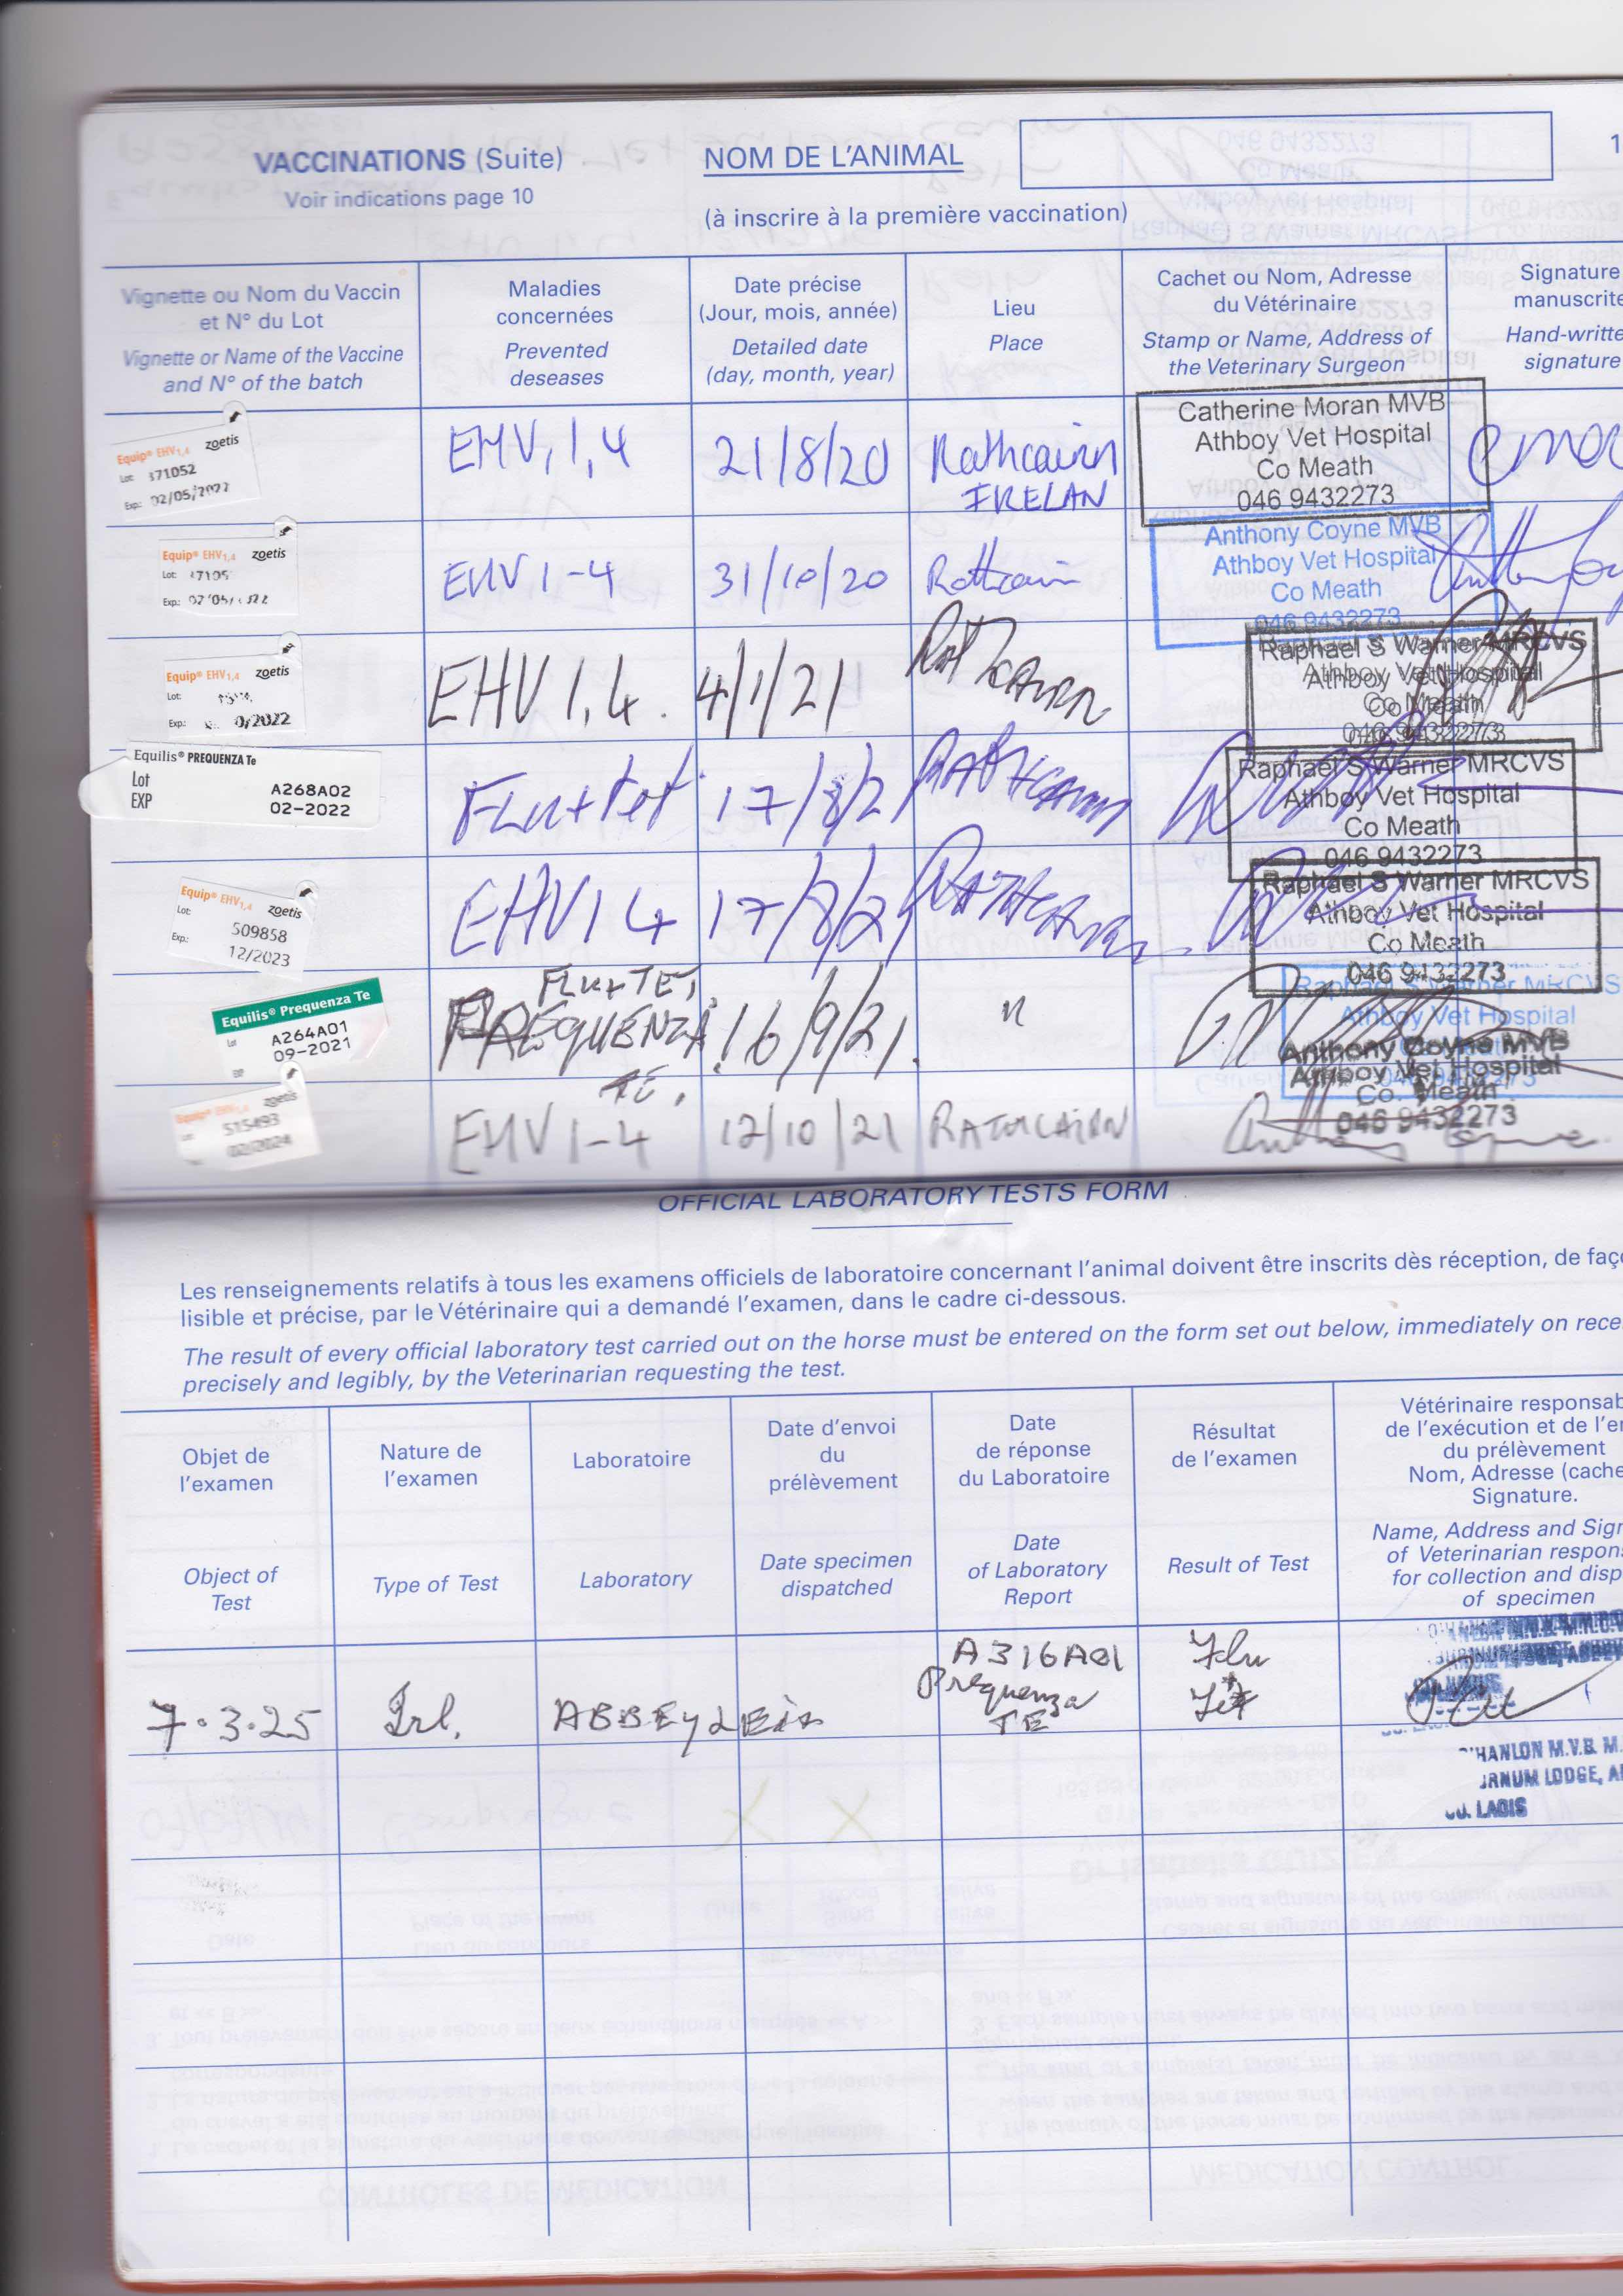 VACCINATIONS (Suite)
Voir indications page 10
NOM DE L'ANIMAL
(à inscrire à la première vaccination)
1
Vignette ou Nom du Vaccin
et N° du Lot
Vignette or Name of the Vaccine
and N° of the batch
Maladies
concernées
Prevented
deseases
Date précise
(Jour, mois, année)
Detailed date
(day, month, year)
Lieu
Place
Cachet ou Nom, Adresse
du Vétérinaire
Stamp or Name, Address of
the Veterinary Surgeon
Signature
manuscrite
Hand-writte
signature
Equip® EHV1,4 zoetis
Lot: 171052
Exp.: 02/05/2022
EHV, 1, 4
21/8/20
Rathcairn
IRELAN
Catherine Moran MVB
Athboy Vet Hospital
Co Meath
046 9432273
Equip® EHV1,4 zoetis
Lot:
Exp.:
EHV 1-4
31/10/20
Rathcairn
Anthony Coyne MVB
Athboy Vet Hospital
Co Meath
046 9432273
Equip® EHV1,4 zoetis
Lot:
Exp.: 0/2022
EHV 1,4.
4/1/21
Rathcairn
Raphael S Warner MRCVS
Athboy Vet Hospital
Co Meath
046 9432273
Equilis® PREQUENZA Te
Lot A268A02
EXP 02-2022
Flu+tet
17/8/21
Rathcairn
Raphael S Warner MRCVS
Athboy Vet Hospital
Co Meath
046 9432273
Equip® EHV1,4 zoetis
Lot: 509858
Exp.: 12/2023
EHV 1 4
17/8/21
Rathcairn
Raphael S Warner MRCVS
Athboy Vet Hospital
Co Meath
046 9432273
Equilis® Prequenza Te
Lot A264A01
09-2021
EXP
FLU+TET,
PREQUENZA
TE,
16/9/21.
"
Raphael S Warner MRCVS
Athboy Vet Hospital
Equip® EHV1,4 zoetis
515493
02/2024
EHV 1-4
12/10/21
RATHCAIRN
Anthony Coyne MVB
Athboy Vet Hospital
Co. Meath
046 9432273
OFFICIAL LABORATORY TESTS FORM
Les renseignements relatifs à tous les examens officiels de laboratoire concernant l'animal doivent être inscrits dès réception, de faço
lisible et précise, par le Vétérinaire qui a demandé l'examen, dans le cadre ci-dessous.
The result of every official laboratory test carried out on the horse must be entered on the form set out below, immediately on rece
precisely and legibly, by the Veterinarian requesting the test.
Objet de
l'examen
Object of
Test
Nature de
l'examen
Type of Test
Laboratoire
Laboratory
Date d'envoi
du
prélèvement
Date specimen
dispatched
Date
de réponse
du Laboratoire
Date
of Laboratory
Report
Résultat
de l'examen
Result of Test
Vétérinaire responsab
de l'exécution et de l'en
du prélèvement
Nom, Adresse (cache
Signature.
Name, Address and Sign
of Veterinarian respons
for collection and disp
of specimen
7.3.25
Irl.
ABBEYLEix
A316A01
Prequenza
TE
Flu
+
Tet
HANLON M.V.B. M.
URNUM LODGE, A
CO. LAOIS